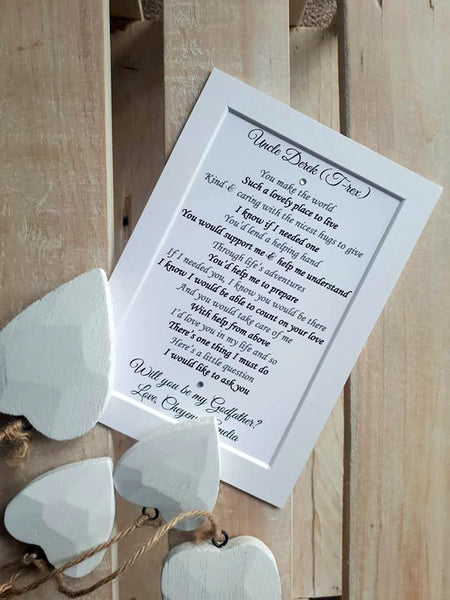 Uncle Derek (T-rex)
You make the world
Such a lovely place to live
Kind & caring with the nicest hugs to give
I know if I needed one
You'd lend a helping hand
You would support me & help me understand
Through life's adventures
You'd help me to prepare
If I needed you, I know you would be there
I know I would be able to count on your love
And you would take care of me
With help from above
I'd love you in my life and so
There's one thing I must do
Here's a little question
I would like to ask you
Will you be my Godfather?
Love,